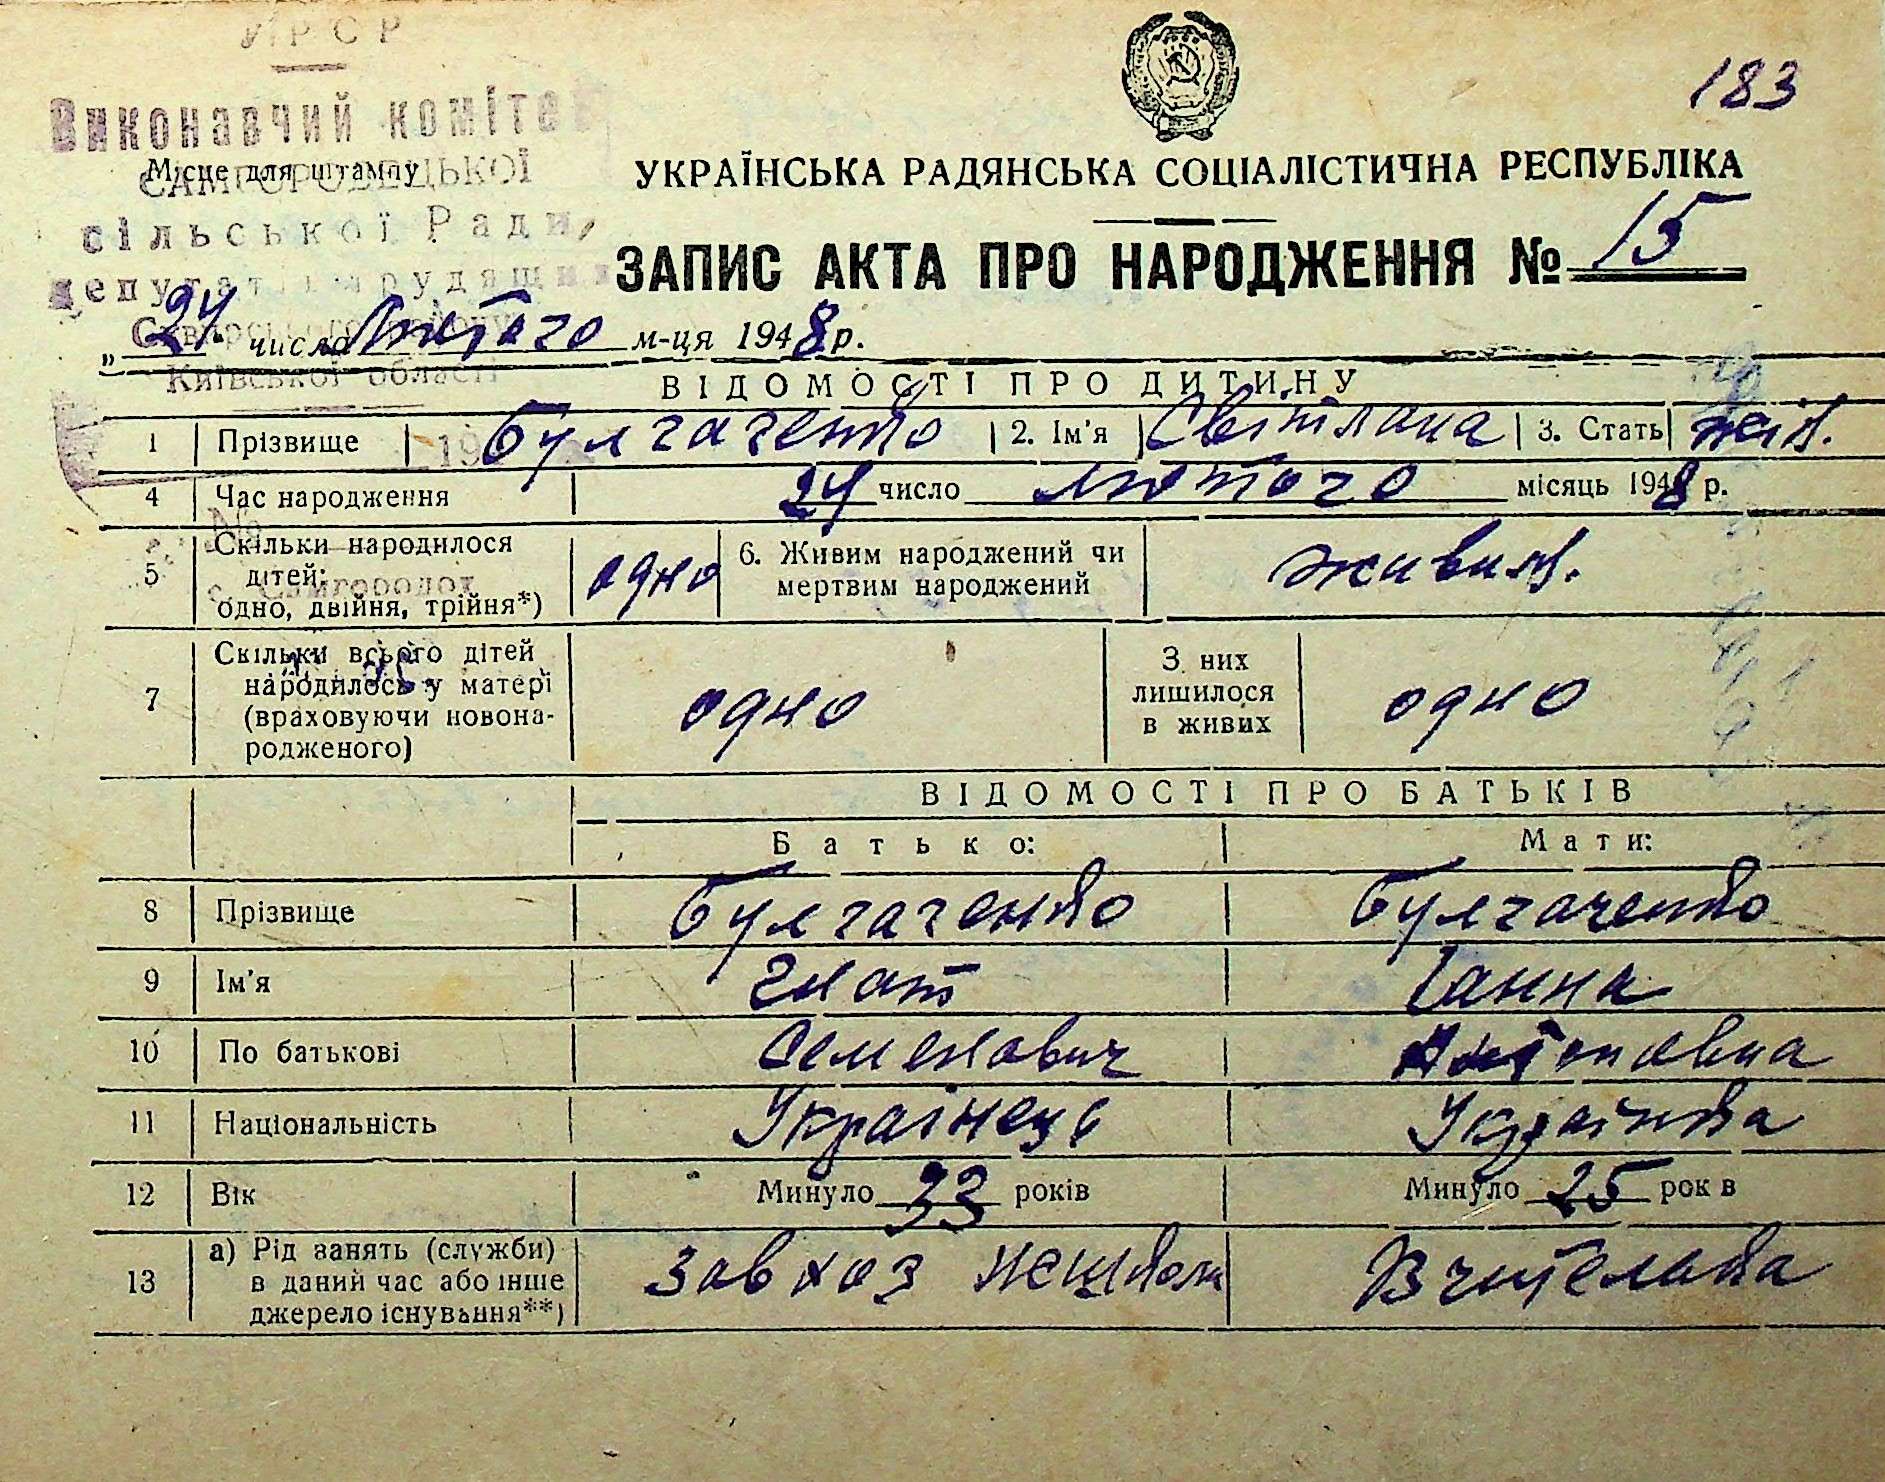 УРСР
183
Виконавчий комітет
Місце для штампу
САМГОРОДЕЦЬКОЇ
УКРАЇНСЬКА РАДЯНСЬКА СОЦІАЛІСТИЧНА РЕСПУБЛІКА
сільської Ради
ЗАПИС АКТА ПРО НАРОДЖЕННЯ № 15
депутатів трудящих
„24" числа Лютого м-ця 1948 р.
Київської області
ВІДОМОСТІ ПРО ДИТИНУ
1 Прізвище Булгаченко 2. Ім'я Світлана 3. Стать жін.
4 Час народження 24 число лютого місяць 1948 р.
5 Скільки народилося дітей: одно, двійня, трійня*) одно 6. Живим народжений чи мертвим народжений живим.
с. Самгородок
7 Скільки всього дітей народилось у матері (враховуючи новонародженого) одно З них лишилося в живих одно
ВІДОМОСТІ ПРО БАТЬКІВ
Батько: Мати:
8 Прізвище Булгаченко Булгаченко
9 Ім'я Гнат Ганна
10 По батькові Семенович Антоновна
11 Національність Українець Українка
12 Вік Минуло 33 років Минуло 25 рок в
13 а) Рід занять (служби) в даний час або інше джерело існування**) Завхоз Вчителька